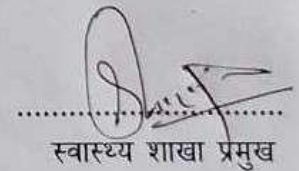 स्वास्थ्य शाखा प्रमुख